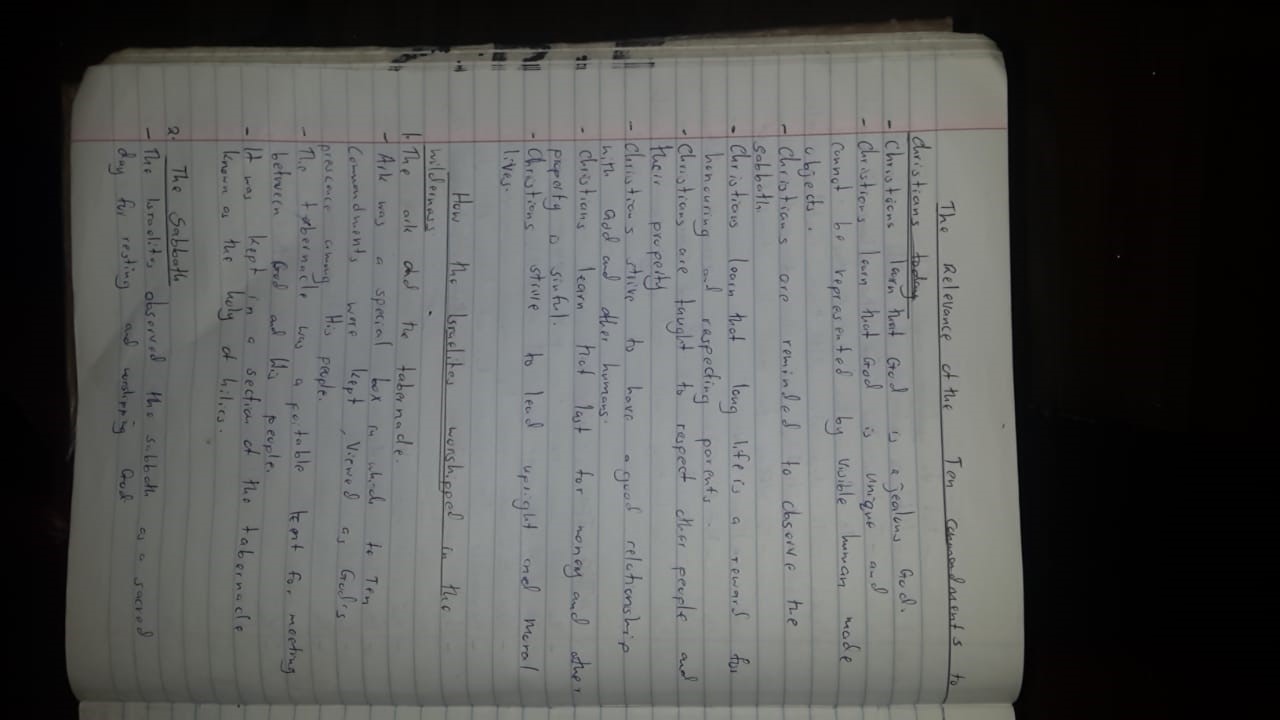 The Relevance of the Ten commandments to
christians today
- Christians learn that God is a jealous God.
- Christians learn that God is unique and
cannot be represented by visible human made
objects.
- Christians are reminded to observe the
Sabbath.
- Christians learn that long life is a reward for
honouring and respecting parents.
- Christians are taught to respect other people and
their property
- Christians strive to have a good relationship
with God and other humans.
- Christians learn that lust for money and other
property is sinful.
- Christians strive to lead upright and moral
lives.
How the Israelites worshipped in the
wilderness
1. The ark and the tabernacle.
- Ark was a special box in which to Ten
Commandments were kept, Viewed as God's
presence among His people.
- The tabernacle was a portable tent for meeting
between God and His people.
- It was kept in a section of the tabernacle
known as the holy of hilies.
2. The Sabbath
- The Israelites observed the sabbath as a sacred
day for resting and worshipping God.